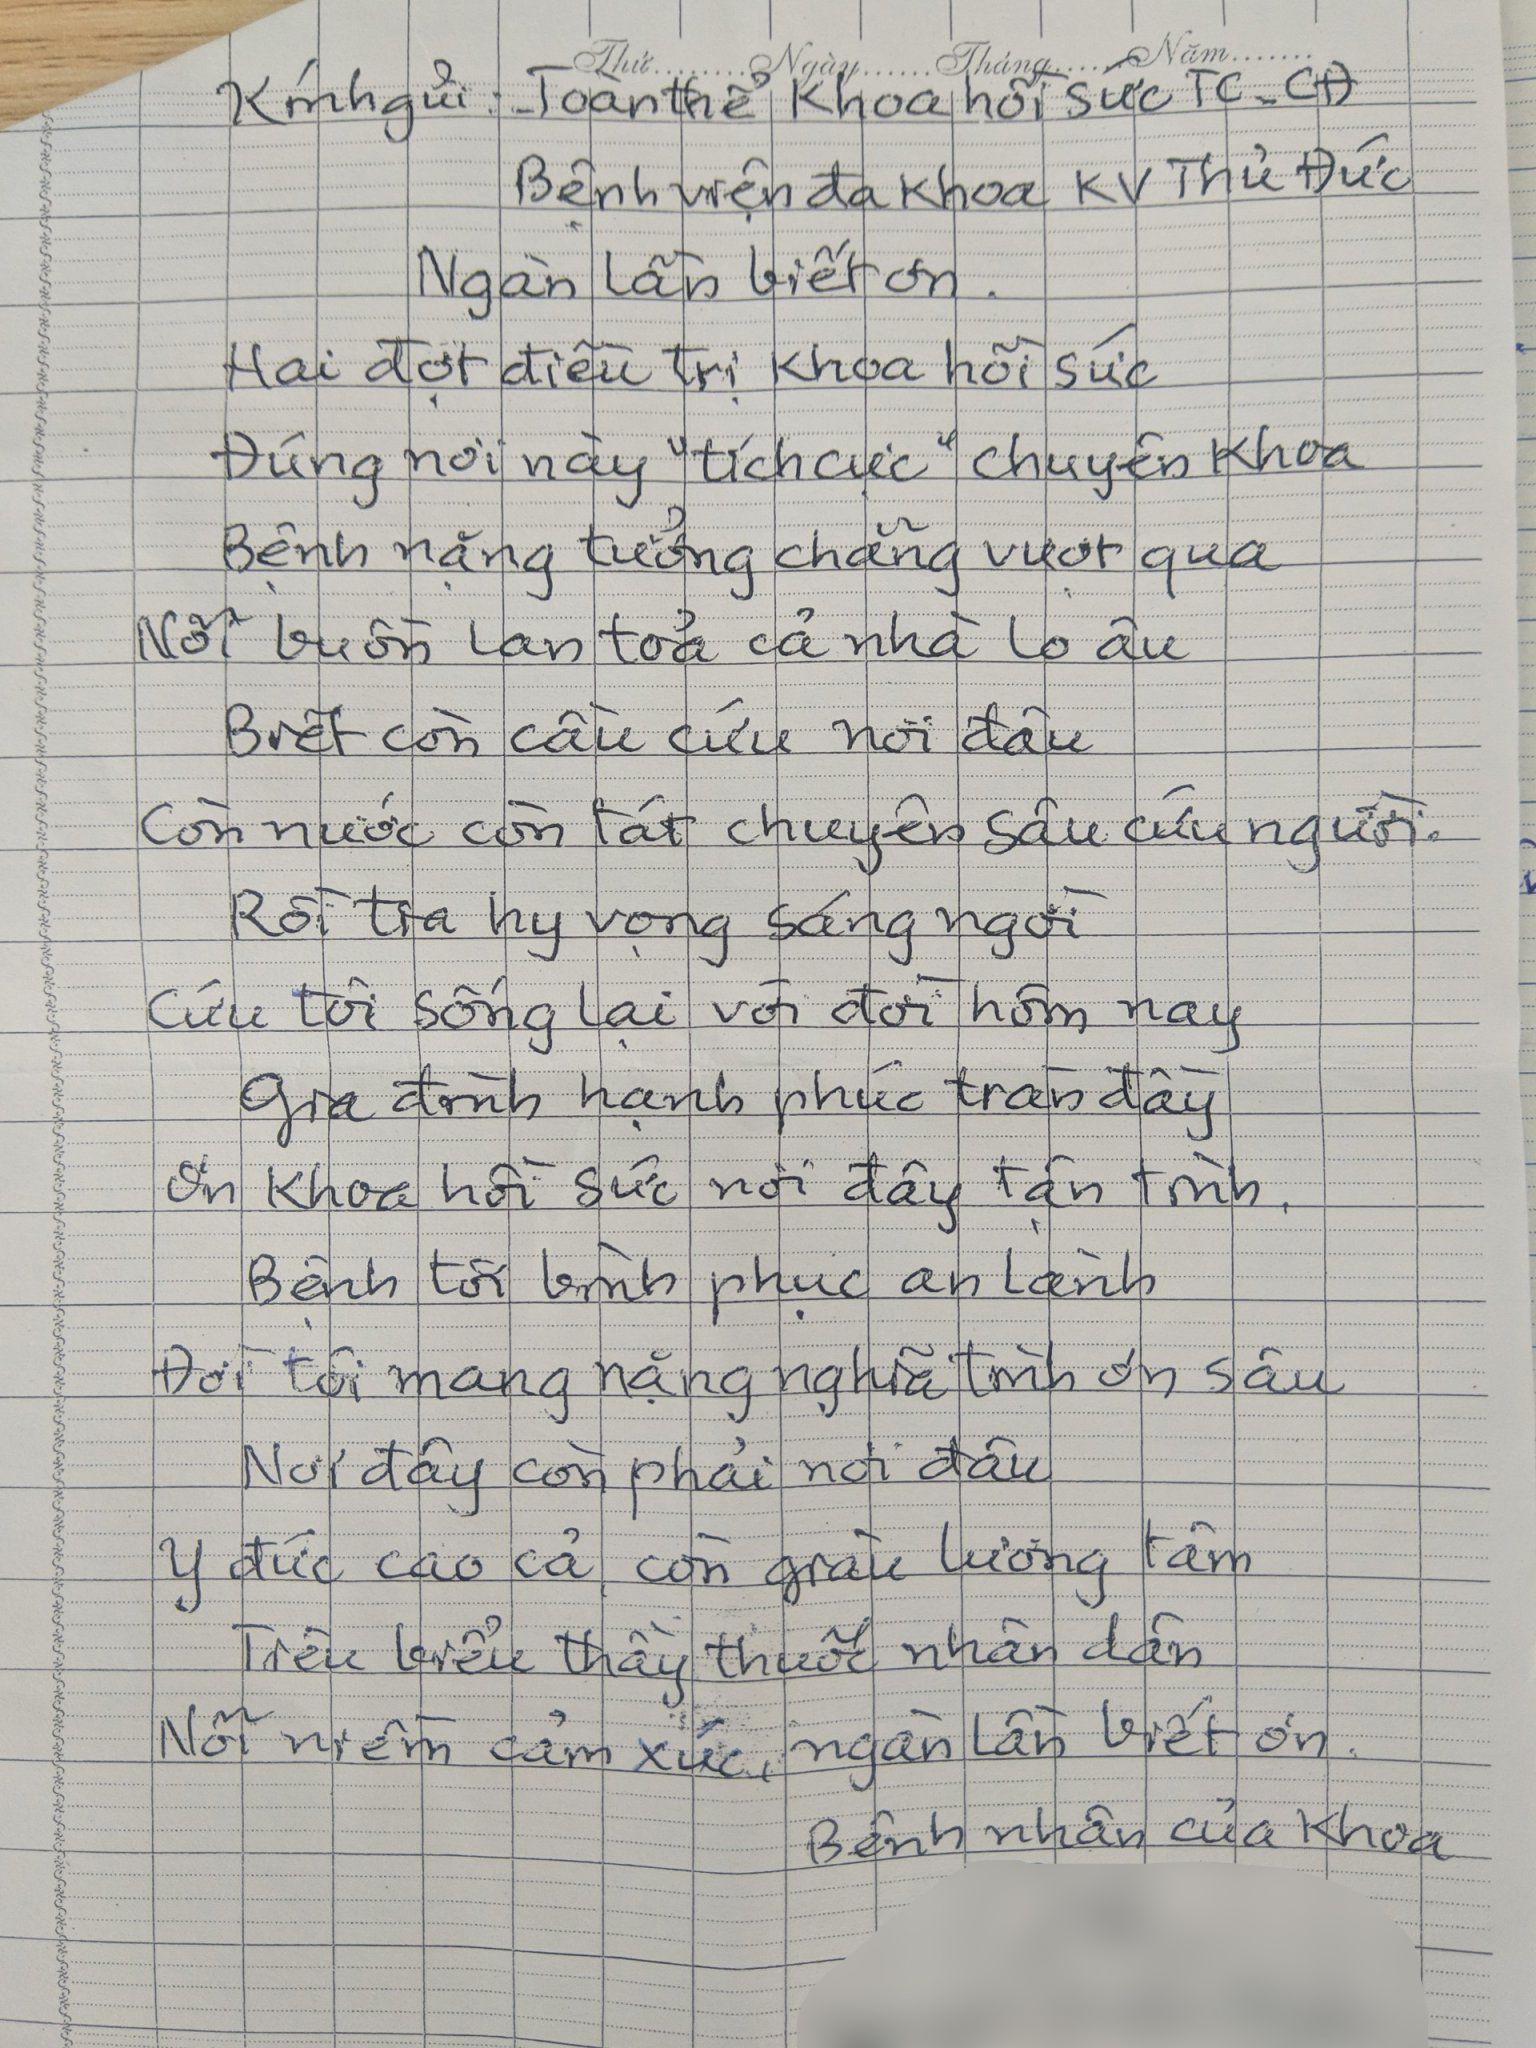 Thứ.........Ngày......Tháng......Năm.......
Kính gửi: - Toàn thể Khoa hồi sức TC - CĐ
Bệnh viện đa khoa KV Thủ Đức
Ngàn lần biết ơn.
Hai đợt điều trị khoa hồi sức
Đúng nơi này "tích cực" chuyên khoa
Bệnh nặng tưởng chẵng vượt qua
Nỗi buồn lan toả cả nhà lo âu
Biết còn cầu cứu nơi đâu
Còn nước còn tát chuyên sâu cứu người.
Rồi tia hy vọng sáng ngời
Cứu tôi sống lại với đời hôm nay
Gia đình hạnh phúc tràn đầy
Ơn khoa hồi sức nơi đây tận tình.
Bệnh tôi bình phục an lành
Đời tôi mang nặng nghĩa tình ơn sâu
Nơi đây còn phải nơi đâu
Y đức cao cả, còn giàu lương tâm
Tiêu biểu thầy thuốc nhân dân
Nỗi niềm cảm xúc, ngàn lần biết ơn.
Bệnh nhân của khoa